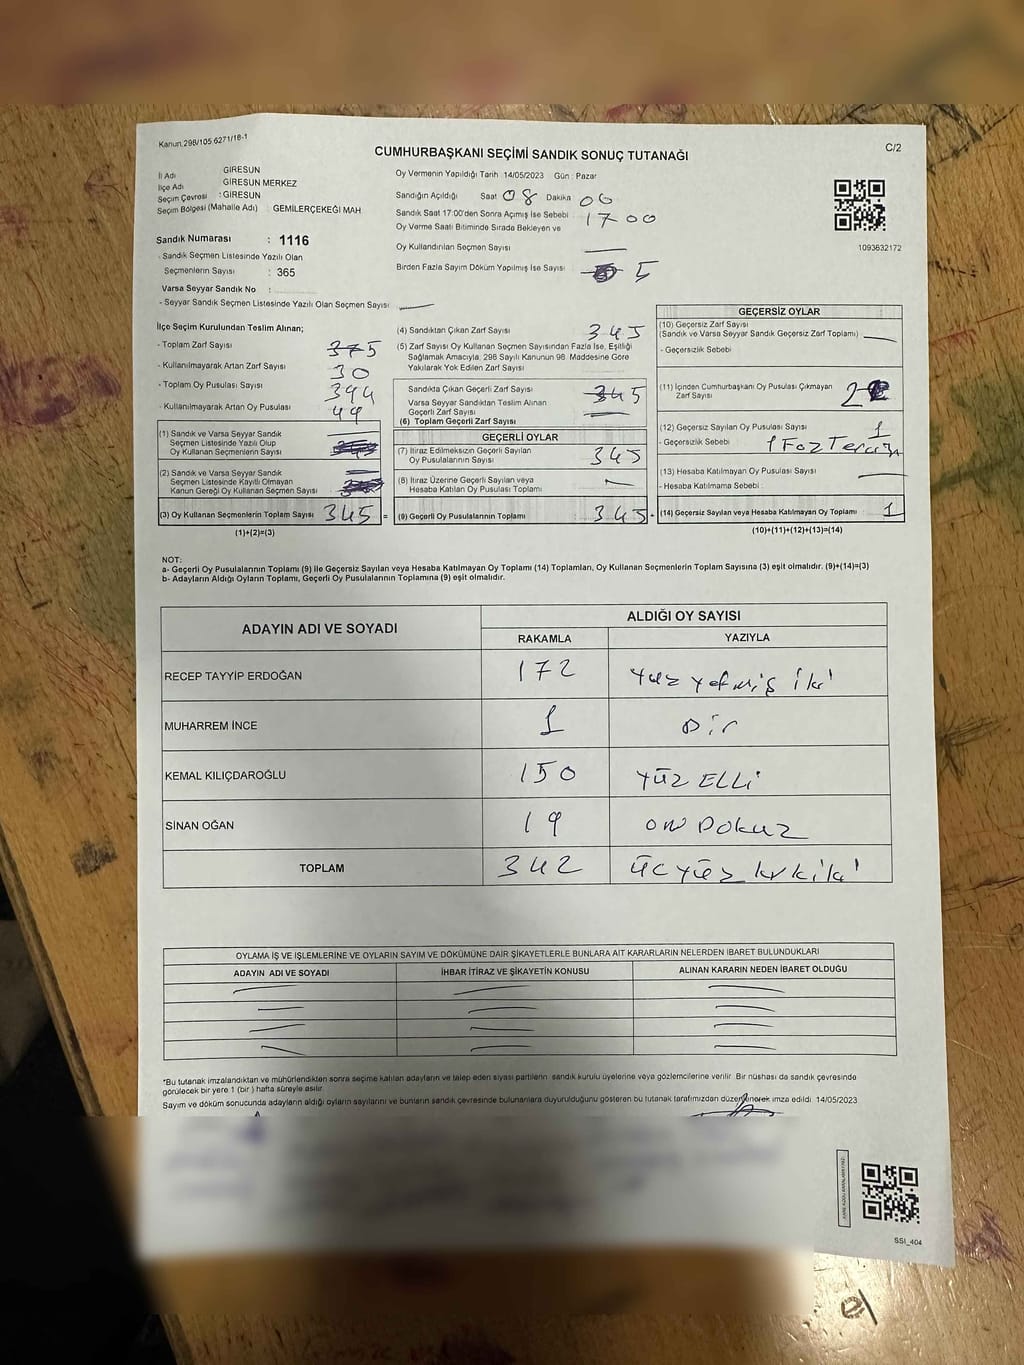 Kanun 298/105 6271/18-1
C/2
CUMHURBAŞKANI SEÇİMİ SANDIK SONUÇ TUTANAĞI
İl Adı GİRESUN
İlçe Adı GİRESUN MERKEZ
Seçim Çevresi : GİRESUN
Seçim Bölgesi (Mahalle Adı) : GEMİLERÇEKEĞİ MAH
Sandık Numarası : 1116
- Sandık Seçmen Listesinde Yazılı Olan
Seçmenlerin Sayısı : 365
Varsa Seyyar Sandık No :
- Seyyar Sandık Seçmen Listesinde Yazılı Olan Seçmen Sayısı
Oy Vermenin Yapıldığı Tarih : 14/05/2023 Gün : Pazar
Sandığın Açıldığı Saat 08 Dakika 00
Sandık Saat 17:00'den Sonra Açımış İse Sebebi : 1700
Oy Verme Saati Bitiminde Sırada Bekleyen ve
Oy Kullandırılan Seçmen Sayısı
Birden Fazla Sayım Döküm Yapılmış İse Sayısı 5
1093632172
İlçe Seçim Kurulundan Teslim Alınan;
- Toplam Zarf Sayısı 375
- Kullanılmayarak Artan Zarf Sayısı 30
- Toplam Oy Pusulası Sayısı 394
- Kullanılmayarak Artan Oy Pusulası 49
(1) Sandık ve Varsa Seyyar Sandık
Seçmen Listesinde Yazılı Olup
Oy Kullanan Seçmenlerin Sayısı
(2) Sandık ve Varsa Seyyar Sandık
Seçmen Listesinde Kayıtlı Olmayan
Kanun Gereği Oy Kullanan Seçmen Sayısı
(3) Oy Kullanan Seçmenlerin Toplam Sayısı 345 =
(1)+(2)=(3)
(4) Sandıktan Çıkan Zarf Sayısı 345
(5) Zarf Sayısı Oy Kullanan Seçmen Sayısından Fazla İse, Eşitliği
Sağlamak Amacıyla, 298 Sayılı Kanunun 98. Maddesine Göre
Yakılarak Yok Edilen Zarf Sayısı
Sandıkta Çıkan Geçerli Zarf Sayısı 345
Varsa Seyyar Sandıktan Teslim Alınan
Geçerli Zarf Sayısı
(6) Toplam Geçerli Zarf Sayısı
GEÇERLİ OYLAR
(7) İtiraz Edilmeksizin Geçerli Sayılan
Oy Pusulalarının Sayısı 345
(8) İtiraz Üzerine Geçerli Sayılan veya
Hesaba Katılan Oy Pusulası Toplamı
(9) Geçerli Oy Pusulalarının Toplamı : 345
GEÇERSİZ OYLAR
(10) Geçersiz Zarf Sayısı
(Sandık ve Varsa Seyyar Sandık Geçersiz Zarf Toplamı)
- Geçersizlik Sebebi
(11) İçinden Cumhurbaşkanı Oy Pusulası Çıkmayan
Zarf Sayısı 2
(12) Geçersiz Sayılan Oy Pusulası Sayısı 1
- Geçersizlik Sebebi
(13) Hesaba Katılmayan Oy Pusulası Sayısı
- Hesaba Katılmama Sebebi :
(14) Geçersiz Sayılan veya Hesaba Katılmayan Oy Toplamı : 1
(10)+(11)+(12)+(13)=(14)
NOT:
a- Geçerli Oy Pusulalarının Toplamı (9) ile Geçersiz Sayılan veya Hesaba Katılmayan Oy Toplamı (14) Toplamları, Oy Kullanan Seçmenlerin Toplam Sayısına (3) eşit olmalıdır. (9)+(14)=(3)
b- Adayların Aldığı Oyların Toplamı, Geçerli Oy Pusulalarının Toplamına (9) eşit olmalıdır.
ADAYIN ADI VE SOYADI ALDIĞI OY SAYISI
RAKAMLA YAZIYLA
RECEP TAYYİP ERDOĞAN 172 Yüz yetmiş iki
MUHARREM İNCE 1 Bir
KEMAL KILIÇDAROĞLU 150 YÜZ ELLİ
SİNAN OĞAN 19 ON DOKUZ
TOPLAM 342 ÜÇ YÜZ kırkiki
OYLAMA İŞ VE İŞLEMLERİNE VE OYLARIN SAYIM VE DÖKÜMÜNE DAİR ŞİKAYETLERLE BUNLARA AİT KARARLARIN NELERDEN İBARET BULUNDUKLARI
ADAYIN ADI VE SOYADI İHBAR İTİRAZ VE ŞİKAYETİN KONUSU ALINAN KARARIN NEDEN İBARET OLDUĞU
*Bu tutanak imzalandıktan ve mühürlendikten sonra seçime katılan adayların ve talep eden siyasi partilerin sandık kurulu üyelerine veya gözlemcilerine verilir. Bir nüshası da sandık çevresinde
görülecek bir yere 1 (bir) hafta süreyle asılır.
Sayım ve döküm sonucunda adayların aldığı oyların sayılarını ve bunların sandık çevresinde bulunanlara duyurulduğunu gösteren bu tutanak tarafımızdan düzenlenerek imza edildi. 14/05/2023
SSI_404